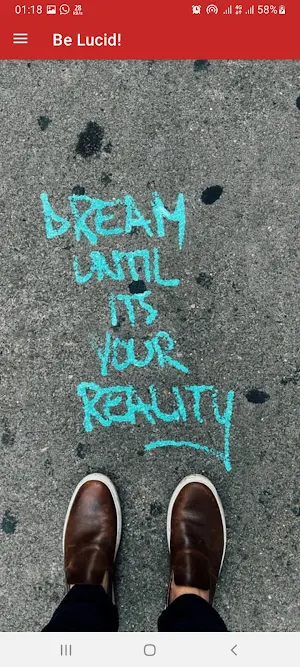 01:18 58%
Be Lucid!
DREAM
UNTIL
ITS
YOUR
REALITY